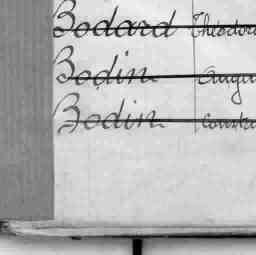 Bodard Théodore
Bodin Augu
Bodin Consta